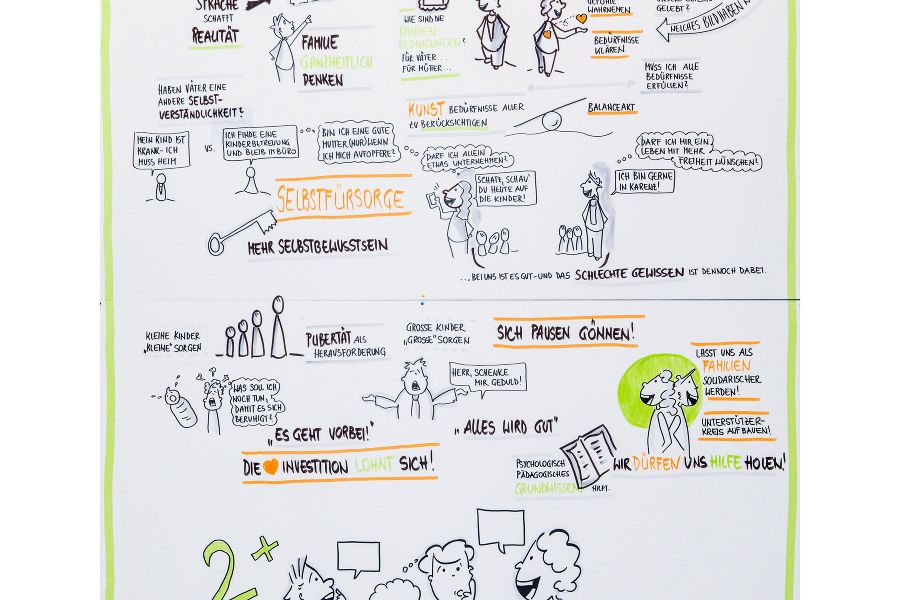 SPRACHE
SCHAFFT
REALITÄT
FAMILIE
GANZHEITLICH
DENKEN
WIE SIND DIE
RAHMEN-
BEDINGUNGEN?
FÜR VÄTER...
FÜR MÜTTER...
WAHRNEHMEN
BEDÜRFNISSE
KLÄREN
GELEBT?
WELCHES BILD HABEN
MUSS ICH ALLE
BEDÜRFNISSE
ERFÜLLEN?
HABEN VÄTER EINE
ANDERE SELBST-
VERSTÄNDLICHKEIT?
KUNST BEDÜRFNISSE ALLER
ZU BERÜCKSICHTIGEN
BALANCEAKT
MEIN KIND IST
KRANK - ICH
MUSS HEIM
VS.
ICH FINDE EINE
KINDERBETREUUNG
UND BLEIB IM BÜRO
BIN ICH EINE GUTE
MUTTER (NUR) WENN
ICH MICH AUFOPFERE?
DARF ICH ALLEIN
ETWAS UNTERNEHMEN?
SCHATZ, SCHAU'
DU HEUTE AUF
DIE KINDER!
DARF ICH MIR EIN
LEBEN MIT MEHR
FREIHEIT WÜNSCHEN?
ICH BIN GERNE
IN KARENZ!
SELBSTFÜRSORGE
MEHR SELBSTBEWUSSTSEIN
...BEI UNS IST ES GUT - UND DAS SCHLECHTE GEWISSEN IST DENNOCH DABEI.
KLEINE KINDER
"KLEINE" SORGEN
PUBERTÄT ALS
HERAUSFORDERUNG
GROSSE KINDER
„GROSSE" SORGEN
SICH PAUSEN GÖNNEN!
WAS SOLL ICH
NOCH TUN,
DAMIT ES SICH
BERUHIGT?
HERR, SCHENKE
MIR GEDULD!
LASST UNS ALS
FAMILIEN
SOLIDARISCHER
WERDEN!
UNTERSTÜTZER-
KREIS AUFBAUEN!
„ES GEHT VORBEI!"
„ALLES WIRD GUT"
DIE INVESTITION LOHNT SICH!
PSYCHOLOGISCH
PÄDAGOGISCHES
GRUNDWISSEN HILFT.
WIR DÜRFEN UNS HILFE HOLEN!
2+